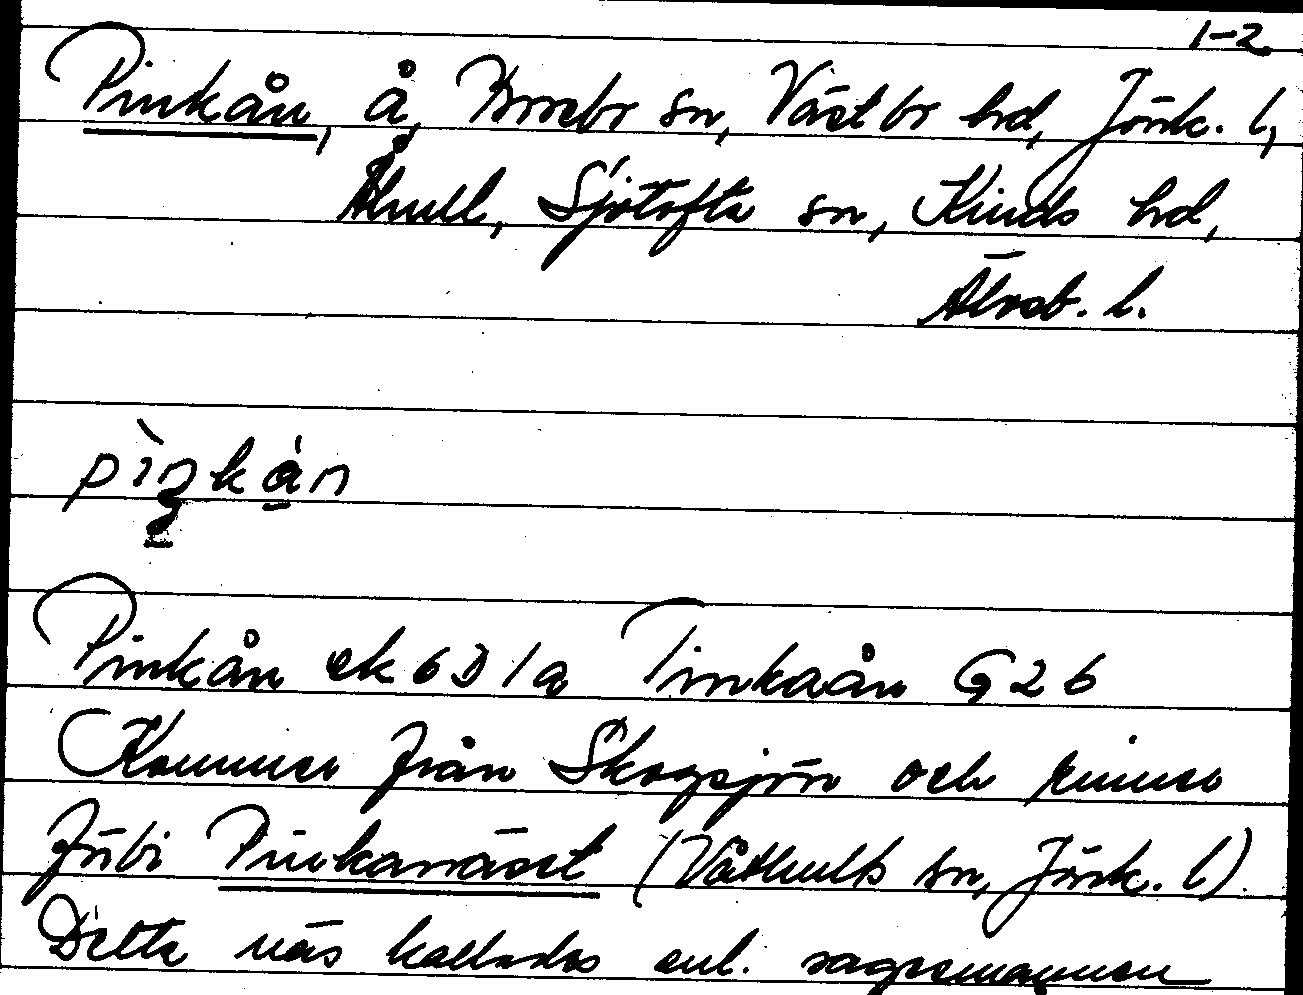 1-2
Pinkån, å, Bosebo sn, Västbo hd, Jönk. l,
Ålhult, Sjötofta sn, Kinds hd,
Älvsb. l.
pìŋkán
Pinkån ek 6D1a Pinkaån G26
Kommer från Skogsjön och rinner
förbi Pinkanäset (Våthults sn, Jönk. l).
Detta näs kallades enl. sagesmannen